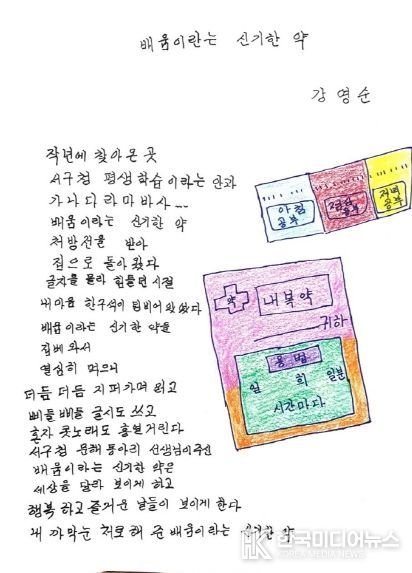 배움이란는 신기한 약
강영순
작년에 찾아온 곳
서구청 평생학습이라는 안과
가나다라마바사...
배움이라는 신기한 약
처방전을 받아
집으로 돌아왔다
글자를 몰라 힘들던 시절
내 마음 한구석이 텅비어 있었다
배움이라는 신기한 약을
집에 와서
열심히 먹으니
더듬 더듬 지퍼가며 읽고
삐뚤빼뚤 글시도 쓰고
혼자 콧노래도 흥얼거린다
서구청 문해 동아리 선생님이주신
배움이라는 신기한 약은
세상을 달라 보이게 하고
행복하고 즐거운 날들이 보이게 한다
내 까막눈 치료해 준 배움이라는 신기한 약
아침
공부
점심
공부
저녁
공부
약
내복약
귀하
용법
일 회 일분
시간마다
한국미디어뉴스
KOREA MEDIA NEWS